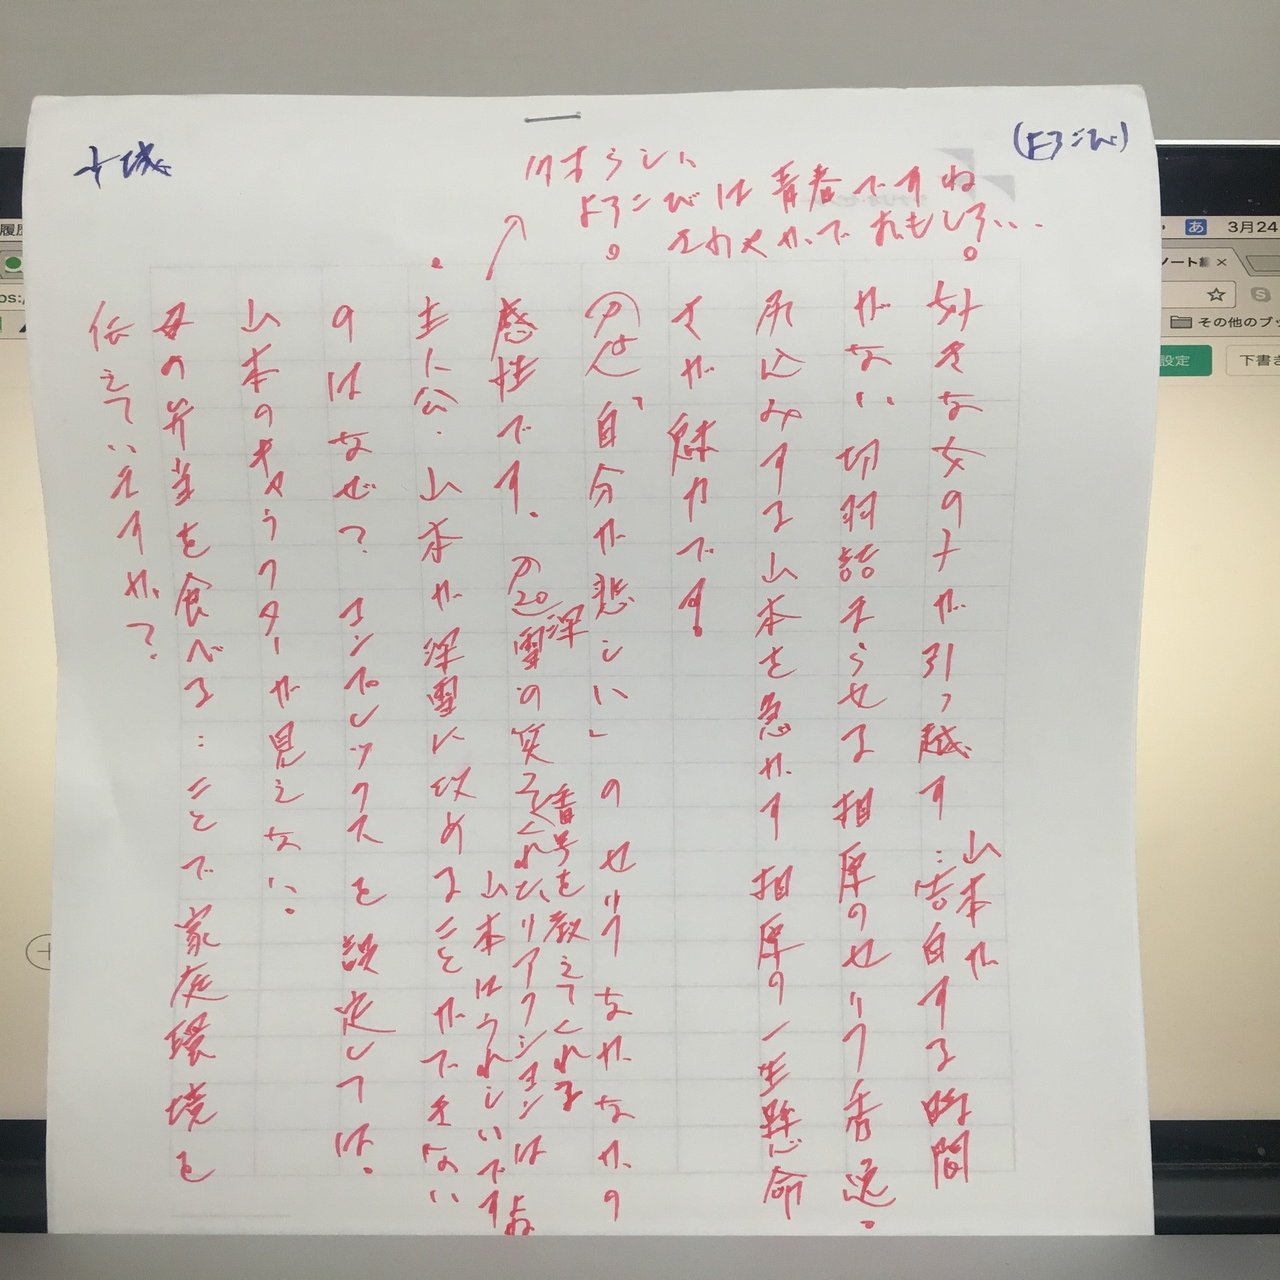 (よろこび)
十城
よろこびは青春ですね
さわやかで おもしろい…
好きな女の子が引っ越す…告白する時間
山本が
がない 切羽詰まらせる 相原のセリフ秀逸。
尻込みする山本を急かす 相原の一生懸命
さが魅力です。
「自分が悲しい」のセリフ なかなかの
感性です。 P20 深雪の笑
番号を教えてくれる
リアクションは よい
山本はうれしいですよね
主人公・山本が深雪に攻めることができない
のはなぜ? コンプレックスを設定しては。
山本のキャラクターが見えない。
母の弁当を食べる…ことで家庭環境を
伝えていますか?
3月24
ノート編 ×
その他のブッ
設定
下書き
履歴
ps:/
あ